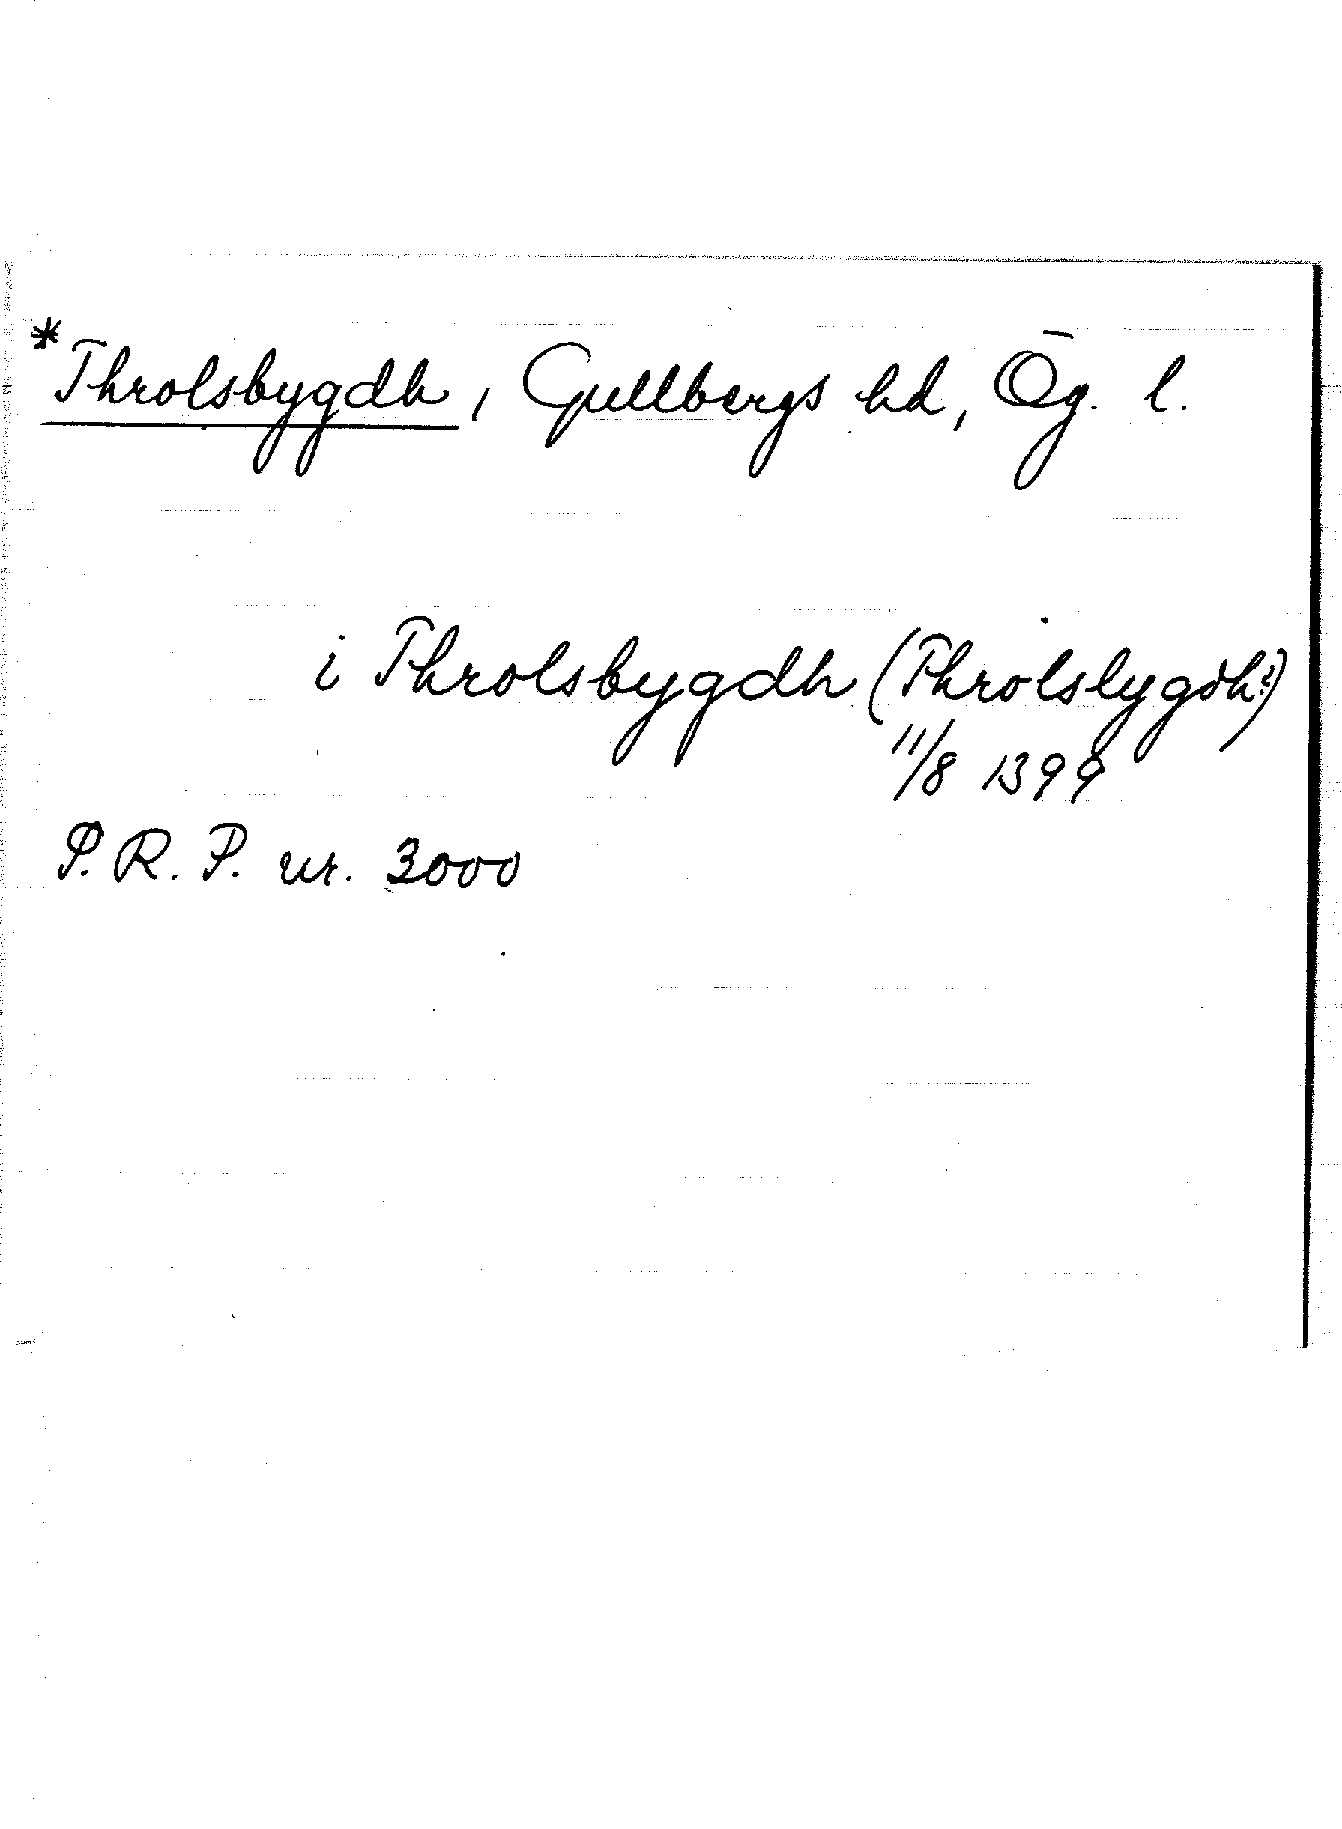 *Throlsbygdh, Gullbergs hd, Ög. l.
i Throlsbygdh (Throlslygdh?)
11/8 1399
P.R.P. nr. 3000